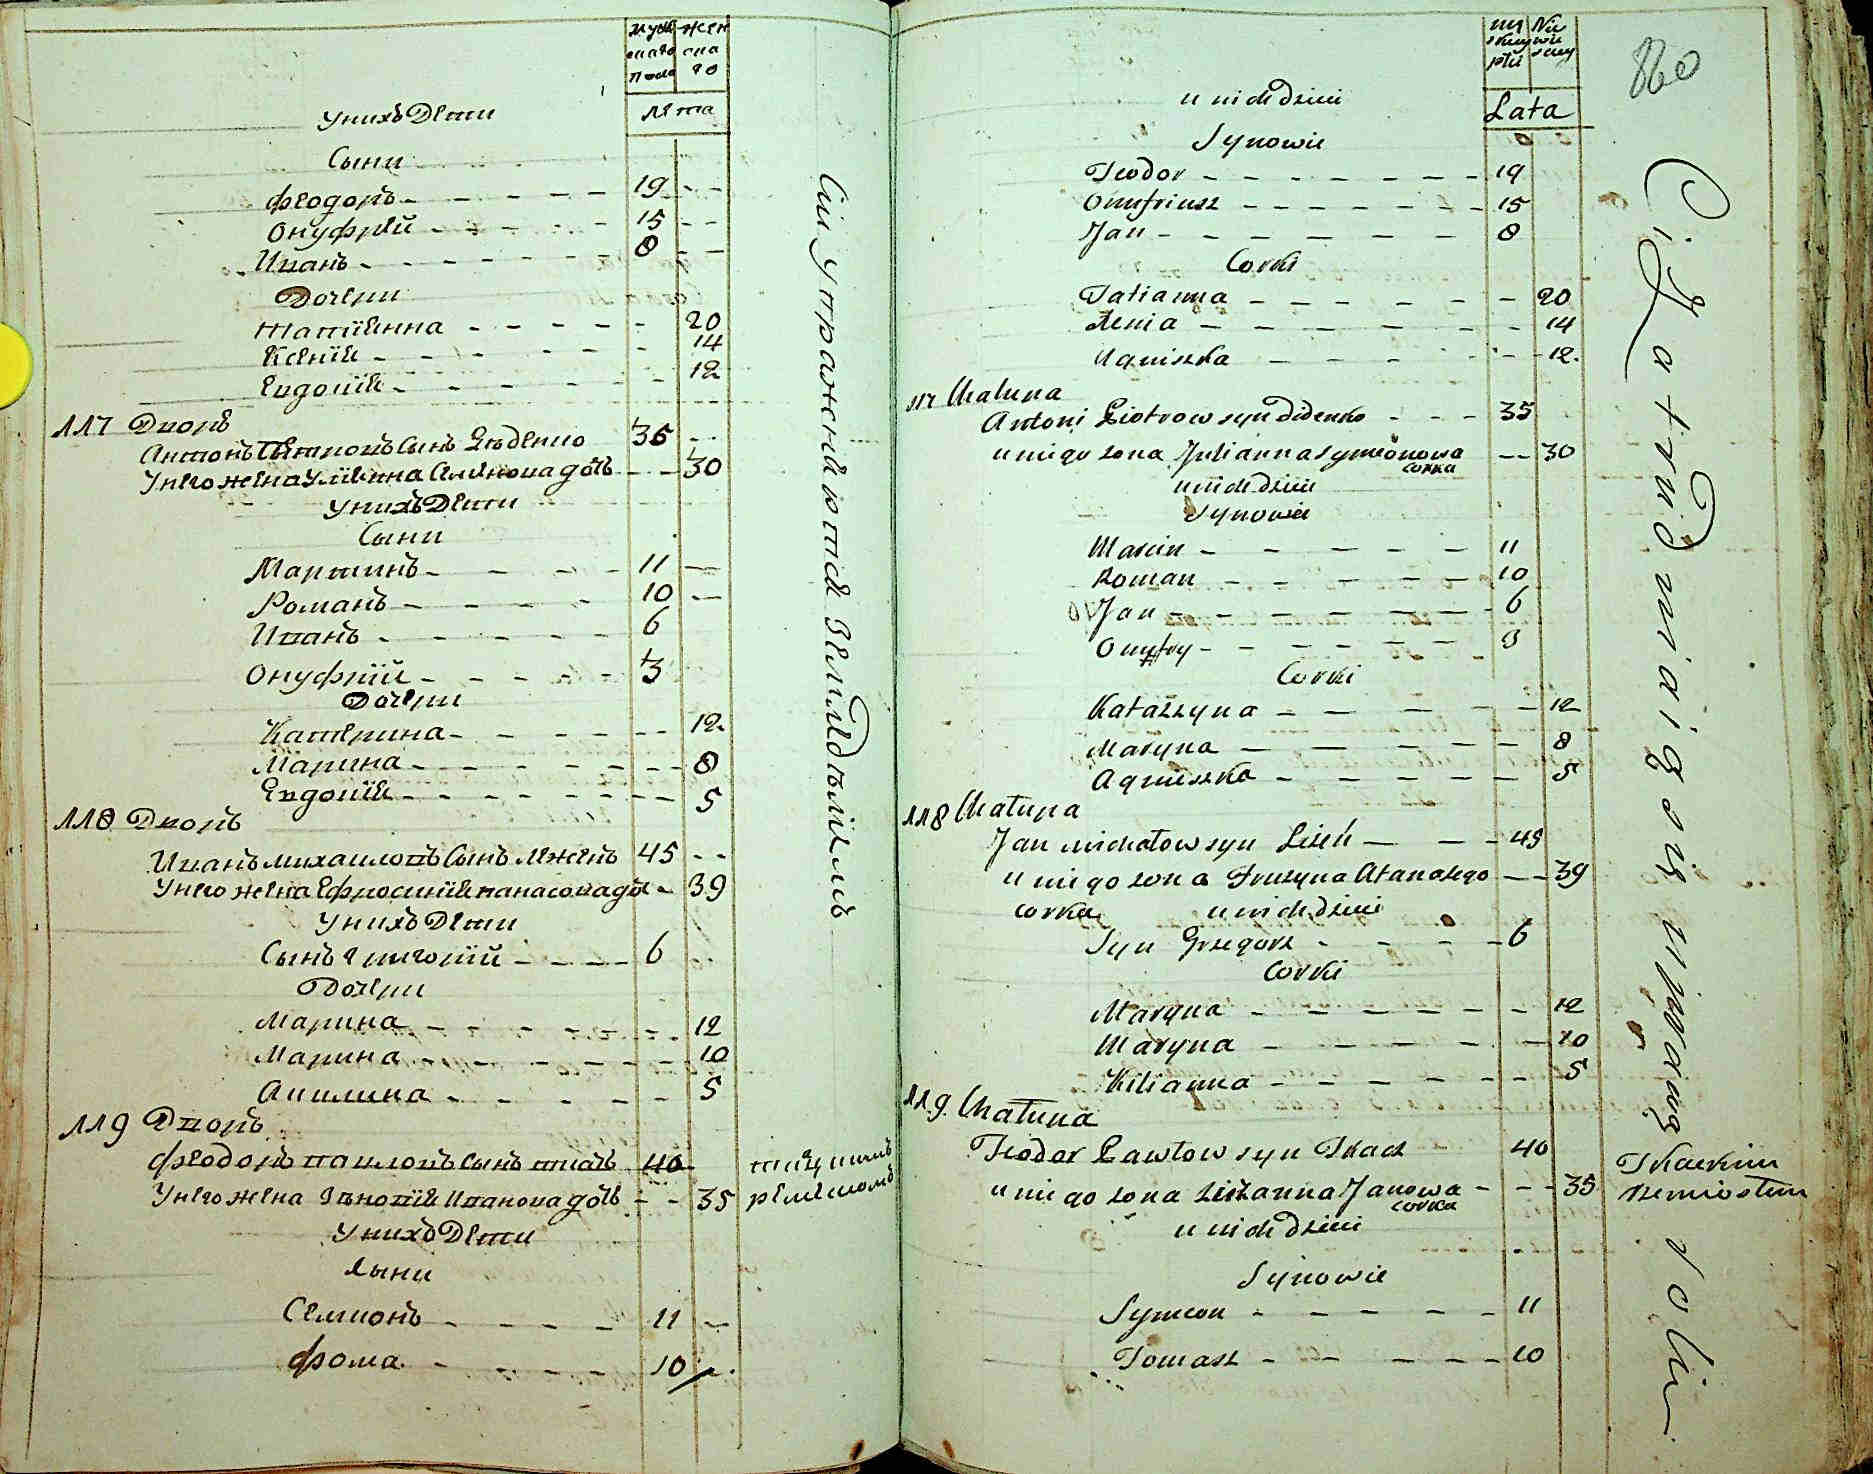 мужескаго пола
женскаго
Лета
У нихъ Дети
Сыни
Феодоръ 19
Онуфрий 15
Иванъ 8
Дочери
Татиянна 20
Ксения 14
Евдокия 12
117 Дворъ
Антонъ Петровъ Сынъ Деденко 35
У него жена Улиянна Семенова дочь 30
У нихъ Дети
Сыни
Мартинъ 11
Романъ 10
Иванъ 6
Онуфрий 3
Дочери
Катерина 12
Марина 8
Евдокия 5
118 Дворъ
Иванъ михаиловъ Сынъ Лежень 45
У него жена Ефросиния панасова дочь 39
У нихъ Дети
Сынъ Григорий 6
Дочери
Марина 12
Марина 10
Акилина 5
119 Дворъ
Феодоръ павловъ Сынъ ткачъ 40
У него жена Зеновия Иванова дочь 35
У нихъ Дети
Сыни
Семионъ 11
Фома 10
Сии упражняются земледелиемъ
ткацкимъ
ремесломъ
Lata
u nich dzieci
Synowie
Teodor 19
Onufriusz 15
Jan 8
Corki
Tatianna 20
Xenia 14
Agniszka 12
117 Chałupa
Antoni Piotrow syn Didenko 35
u niego żona Julianna Symeonowa corka 30
u nich dzieci
Synowie
Marcin 11
Roman 10
Jan 6
Onufry 3
Corki
Katarzyna 12
Maryna 8
Agniszka 5
118 Chałupa
Jan michałow syn Lizeń 45
u niego zona Fruzyna Atanazego 39
corka u nich dzieci
Syn Grzegorz 6
Corki
Maryna 12
Maryna 10
Kilianna 5
119 Chałupa
Teodor Pawłow syn Tkacz 40
u niego zona Zuzanna Janowa corka 35
u nich dzieci
Synowie
Symeon 11
Tomasz 10
Ci zatrudniaią się uprawą roli
Tkackim
rzemiosłem